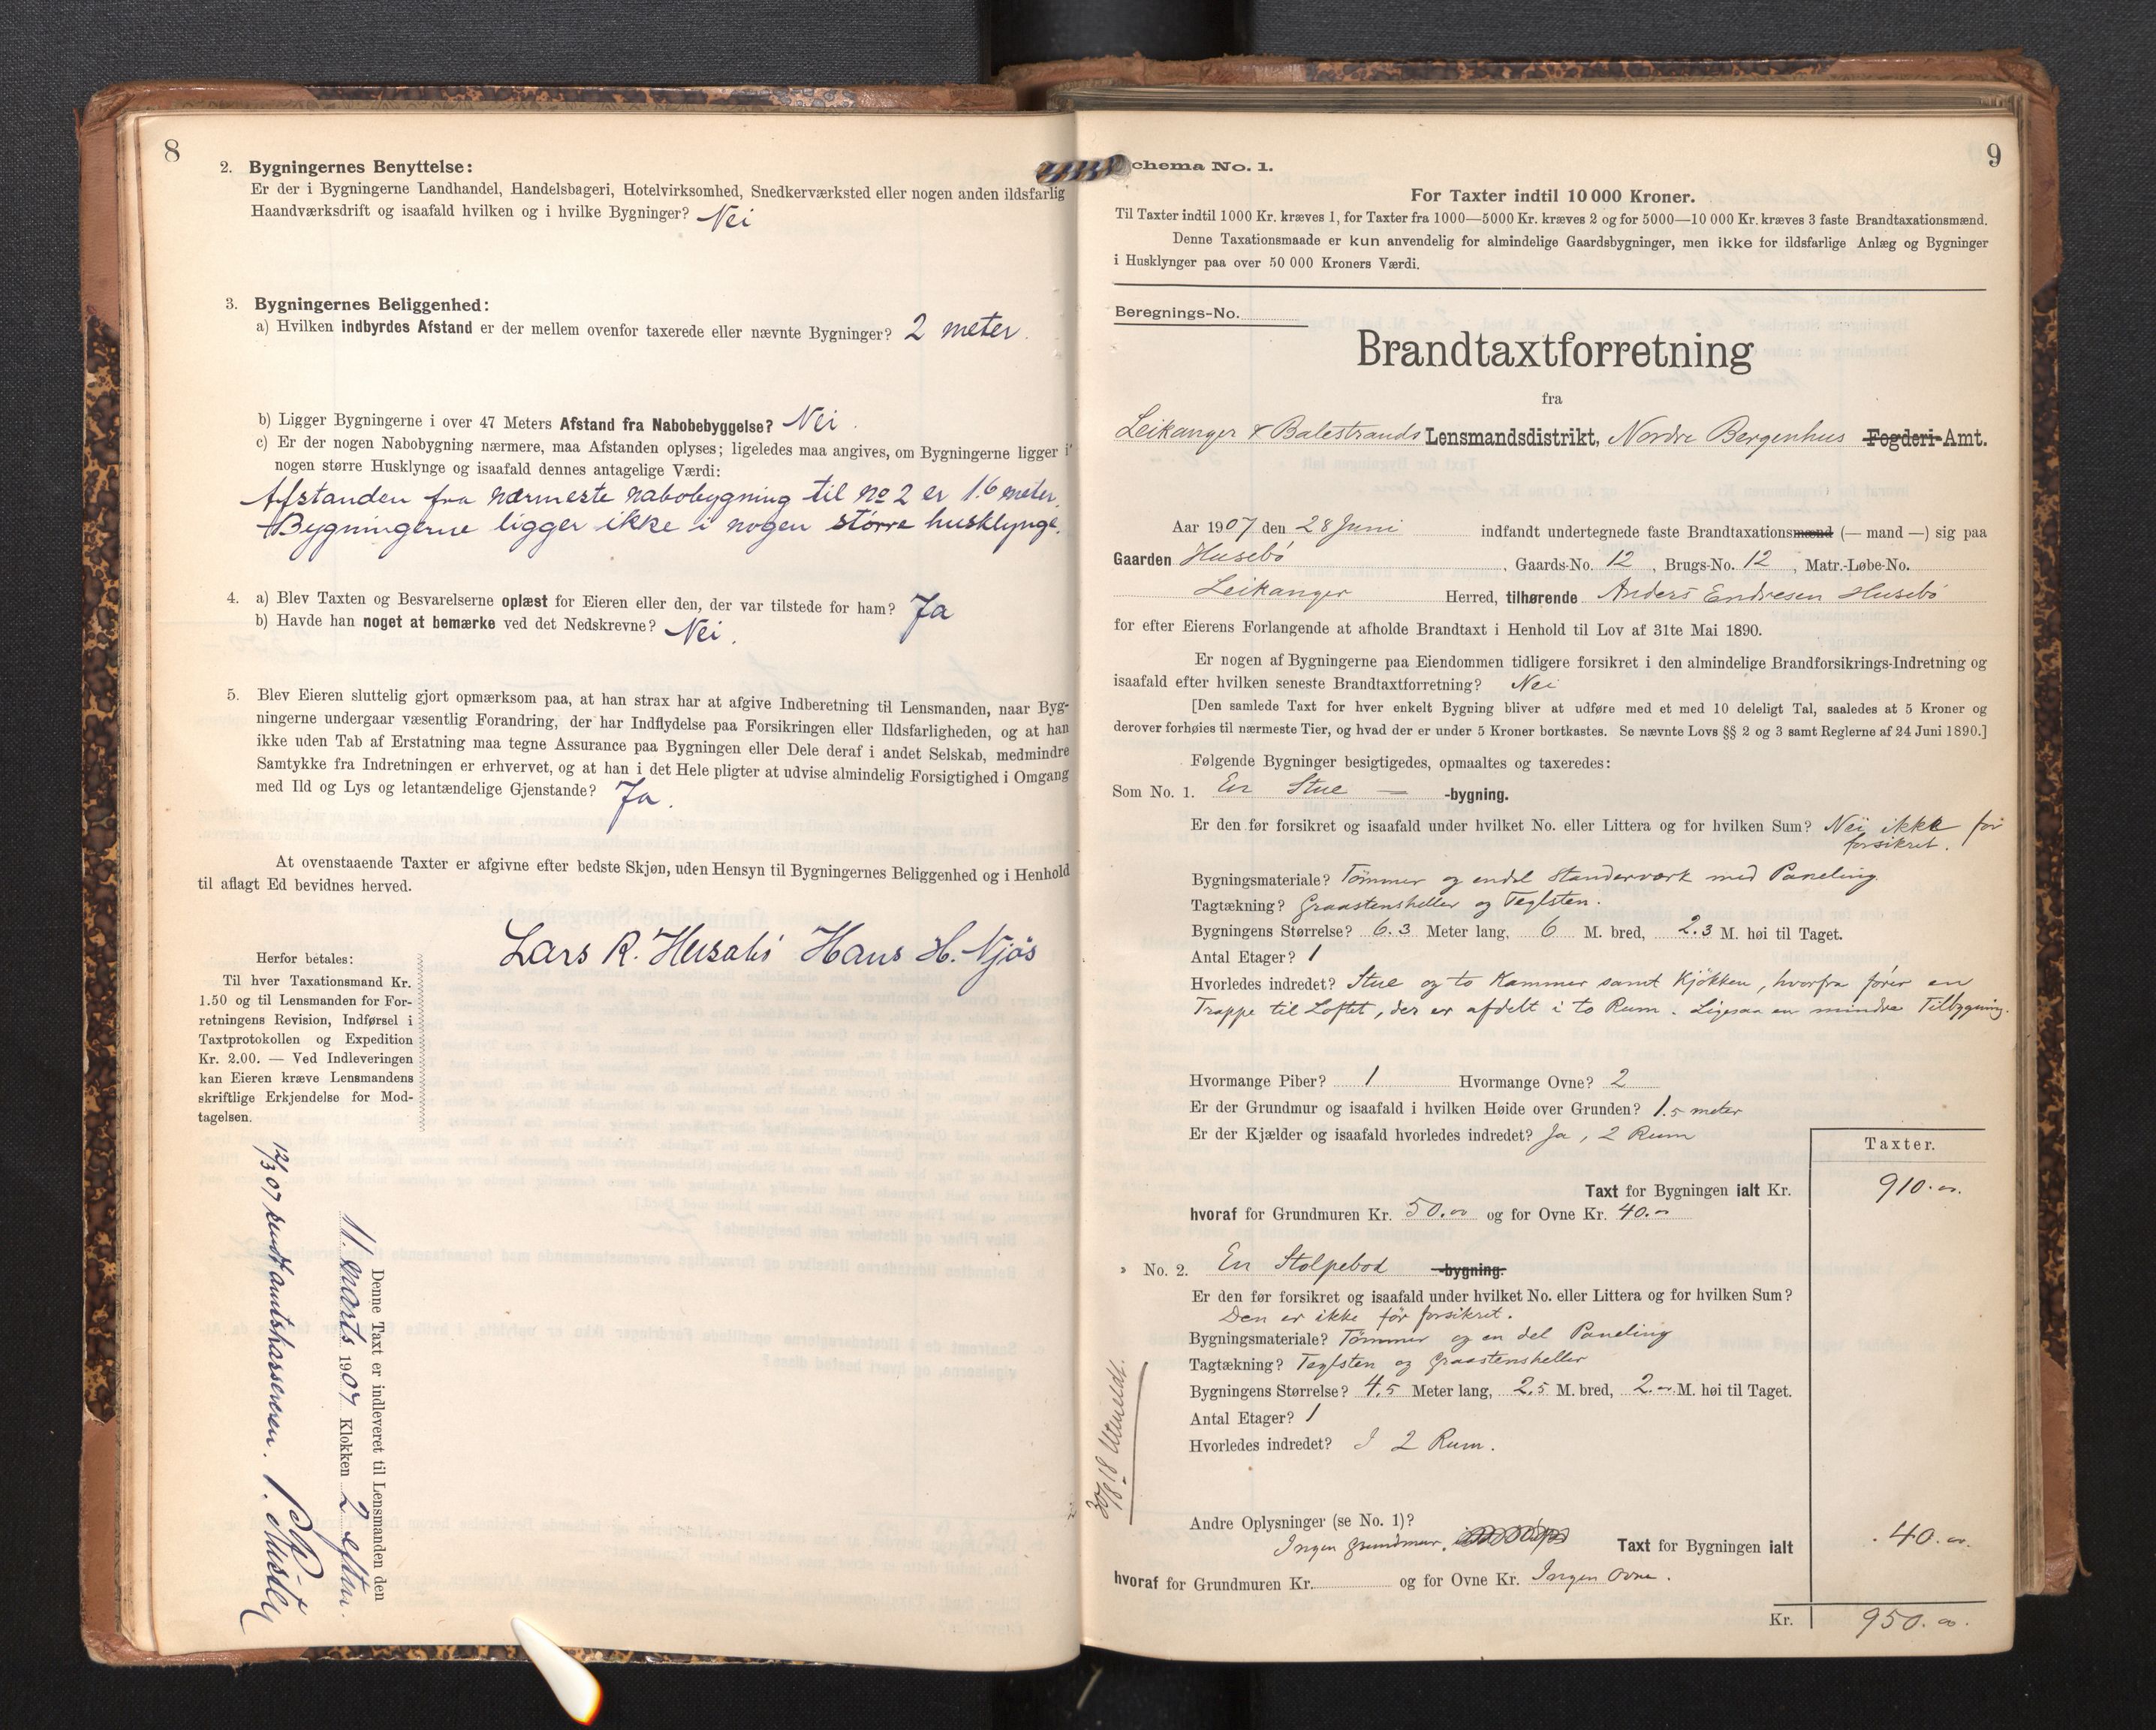 8
2. Bygningernes Benyttelse:
Er der i Bygningerne Landhandel, Handelsbageri, Hotelvirksomhed, Snedkerværksted eller nogen anden ildsfarlig
Haandværksdrift og isaafald hvilken og i hvilke Bygninger? Nei
3. Bygningernes Beliggenhed:
a) Hvilken indbyrdes Afstand er der mellem ovenfor taxerede eller nævnte Bygninger? 2 meter.
b) Ligger Bygningerne i over 47 Meters Afstand fra Nabobebyggelse? Nei.
c) Er der nogen Nabobygning nærmere, maa Afstanden oplyses; ligeledes maa angives, om Bygningerne ligger i
nogen større Husklynge og isaafald dennes antagelige Værdi:
Afstanden fra nærmeste nabobygning til no 2 er 1.6 meter.
Bygningerne ligger ikke i nogen større husklynge.
4. a) Blev Taxten og Besvarelserne oplæst for Eieren eller den, der var tilstede for ham? Ja
b) Havde han noget at bemærke ved det Nedskrevne? Nei.
5. Blev Eieren sluttelig gjort opmærksom paa, at han strax har at afgive Indberetning til Lensmanden, naar Byg-
ningerne undergaar væsentlig Forandring, der har Indflydelse paa Forsikringen eller Ildsfarligheden, og at han
ikke uden Tab af Erstatning maa tegne Assurance paa Bygningen eller Dele deraf i andet Selskab, medmindre
Samtykke fra Indretningen er erhvervet, og at han i det Hele pligter at udvise almindelig Forsigtighed i Omgang
med Ild og Lys og letantændelige Gjenstande? Ja.
At ovenstaaende Taxter er afgivne efter bedste Skjøn, uden Hensyn til Bygningernes Beliggenhed og i Henhold
til aflagt Ed bevidnes herved.
Lars R. Husabö Hans H. Njøs
Herfor betales:
Til hver Taxationsmand Kr.
1.50 og til Lensmanden for For-
retningens Revision, Indførsel i
Taxtprotokollen og Expedition
Kr. 2.00. — Ved Indleveringen
kan Eieren kræve Lensmandens
skriftlige Erkjendelse for Mod-
tagelsen.
Denne Taxt er indleveret til Lensmanden den
11. marts 1907 Klokken 2 efterm.
12/3 07 sendt amtskassereren.
9
chema No. 1.
For Taxter indtil 10 000 Kroner.
Til Taxter indtil 1000 Kr. kræves 1, for Taxter fra 1000—5000 Kr. kræves 2 og for 5000—10 000 Kr. kræves 3 faste Brandtaxationsmænd.
Denne Taxationsmaade er kun anvendelig for almindelige Gaardsbygninger, men ikke for ildsfarlige Anlæg og Bygninger
i Husklynger paa over 50 000 Kroners Værdi.
Beregnings-No.
Brandtaxtforretning
fra
Leikanger & Balestrands Lensmandsdistrikt, Nordre Bergenhus Fogderi-Amt.
Aar 1907 den 28 Juni indfandt undertegnede faste Brandtaxationsmænd (— mand —) sig paa
Gaarden Husebö, Gaards-No. 12, Brugs-No. 12, Matr.-Løbe-No.
Leikanger Herred, tilhørende Anders Endresen Husebö
for efter Eierens Forlangende at afholde Brandtaxt i Henhold til Lov af 31te Mai 1890.
Er nogen af Bygningerne paa Eiendommen tidligere forsikret i den almindelige Brandforsikrings-Indretning og
isaafald efter hvilken seneste Brandtaxtforretning? Nei
[Den samlede Taxt for hver enkelt Bygning bliver at udføre med et med 10 deleligt Tal, saaledes at 5 Kroner og
derover forhøies til nærmeste Tier, og hvad der er under 5 Kroner bortkastes. Se nævnte Lovs §§ 2 og 3 samt Reglerne af 24 Juni 1890.]
Følgende Bygninger besigtigedes, opmaaltes og taxeredes:
Som No. 1. En Stue — -bygning.
Er den før forsikret og isaafald under hvilket No. eller Littera og for hvilken Sum? Nei ikke för
forsikret.
Bygningsmateriale? Tömmer og endel Standerværk med Paneling
Tagtækning? Graastensheller og Teglsten.
Bygningens Størrelse? 6.3 Meter lang, 6 M. bred, 2.3 M. høi til Taget.
Antal Etager? 1
Hvorledes indredet? Stue og to Kammer samt Kjökken, hvorfra förer en
Trappe til Loftet, der er afdelt i to Rum. Ligesaa en mindre Tilbygning.
Hvormange Piber? 1 Hvormange Ovne? 2
Er der Grundmur og isaafald i hvilken Høide over Grunden? 1.5 meter
Er der Kjælder og isaafald hvorledes indredet? Ja, 2 Rum
Taxter.
Taxt for Bygningen ialt Kr. 910.00.
hvoraf for Grundmuren Kr. 50.00 og for Ovne Kr. 40.–
" No. 2. En Stolpebod -bygning.
Er den før forsikret og isaafald under hvilket No. eller Littera og for hvilken Sum?
Den er ikke för forsikret.
Bygningsmateriale? Tömmer og en del Paneling
Tagtækning? Teglsten og Graastensheller
Bygningens Størrelse? 4.5 Meter lang, 2.5 M. bred, 2.– M. høi til Taget.
Antal Etager? 1
Hvorledes indredet? I 2 Rum.
30/8 18 Utmeldt.
Andre Oplysninger (se No. 1)?
Ingen Grundmur. Taxt for Bygningen ialt 40.00.
hvoraf for Grundmuren Kr. og for Ovne Kr. Ingen Ovne.
Kr. 950.00.